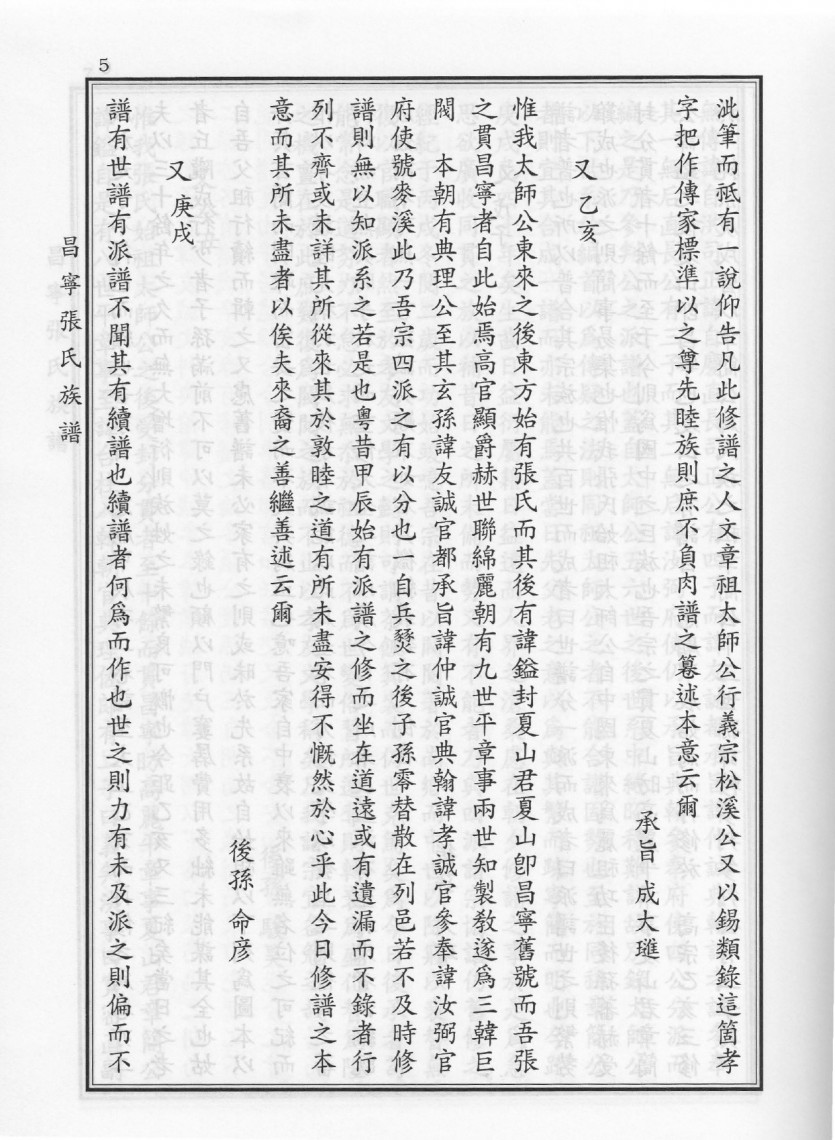 5
泚筆而祗有一說仰告凡此修譜之人文章祖太師公行義宗松溪公又以錫類錄這箇孝
字把作傳家標準以之尊先睦族則庶不負肉譜之簒述本意云爾
承旨 成大璡
又 乙亥
惟我太師公東來之後東方始有張氏而其後有諱鎰封夏山君夏山卽昌寧舊號而吾張
之貫昌寧者自此始焉高官顯爵赫世聯綿麗朝有九世平章事兩世知製敎遂爲三韓巨
閥 本朝有典理公至其玄孫諱友誠官都承旨諱仲誠官典翰諱孝誠官參奉諱汝弼官
府使號麥溪此乃吾宗四派之有以分也 自兵燹之後子孫零替散在列邑若不及時修
譜則無以知派系之若是也粤昔甲辰始有派譜之修而坐在道遠或有遺漏而不錄者行
列不齊或未詳其所從來其於敦睦之道有所未盡安得不慨然於心乎此今日修譜之本
意而其所未盡者以俟夫來裔之善繼善述云爾
後孫 命彦
又 庚戌
譜有世譜有派譜不聞其有續譜也續譜者何爲而作也世之則力有未及派之則偏而不
昌寧張氏族譜